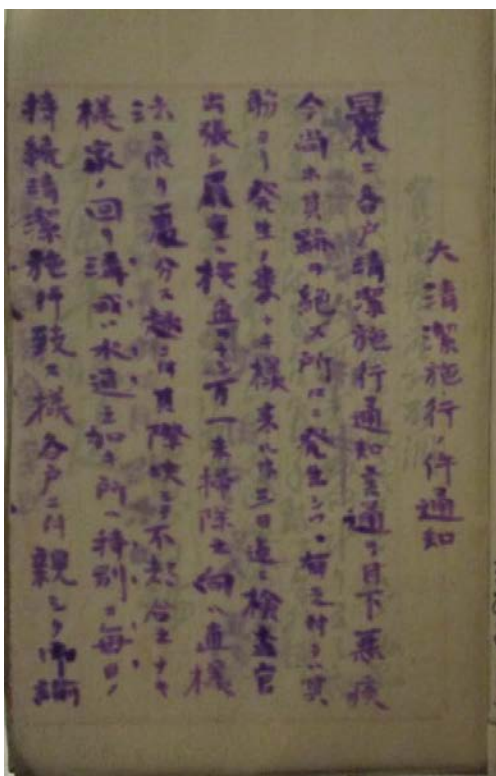 大清潔施行ノ件通知
曩ニ各戸清潔施行通知書通リ目下悪疫
今尚ホ其跡ヲ絶ズ所々ニ発生シツヽ有之付テハ其
発生ノ事ナキ様来ル廿三日迄ニ検査官
出張シ厳重ニ検査ス万一未掃除之向ハ直接
法ニ依リ処分ス趣ニ付其際決シテ不都合之ナキ
様家ノ回リ溝或ハ水道之如キ所ハ特別ニ毎日ノ
持続清潔施行致ス様各戸ニ付親シク御諭